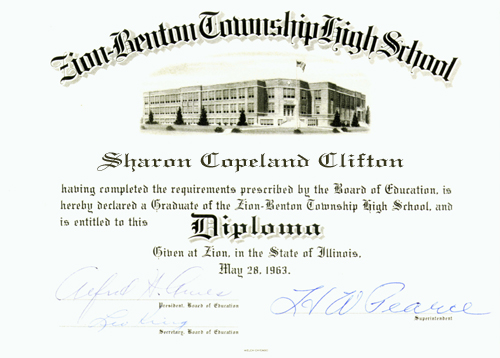 Zion-Benton Township High School
Sharon Copeland Clifton
having completed the requirements prescribed by the Board of Education, is
hereby declared a Graduate of the Zion-Benton Township High School, and
is entitled to this Diploma
Given at Zion, in the State of Illinois,
May 28, 1963.
Alfred H. Ames
President, Board of Education
H W Pearce
Superintendent
Secretary, Board of Education